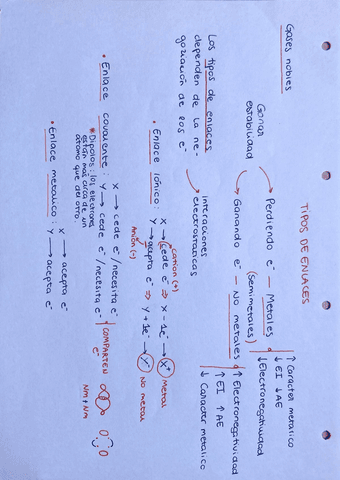 TIPOS DE ENLACES
Gases nobles
Ganan
estabilidad
Perdiendo e⁻ — Metales
(semimetales)
↑ Carácter metálico
↓ EI ↓ AE
↓ Electronegatividad
Ganando e⁻ — No metales
↑ Electronegatividad
↑ EI ↑ AE
↓ Carácter metálico
Los tipos de enlaces
dependen de la ne-
gociación de los e⁻
Interacciones
electrostáticas
• Enlace iónico:
catión (+)
X → cede e⁻ ⇒ X - 1e⁻ → X⁺ Metal
Y → acepta e⁻ ⇒ Y + 1e⁻ → Y⁻ No metal
Anión (-)
• Enlace covalente:
X → cede e⁻/necesita e⁻
Y → cede e⁻/necesita e⁻
COMPARTEN
e⁻
Nm + Nm
*Dipolos: los electrones
están más cerca de un
átomo que del otro.
• Enlace metálico:
X → acepta e⁻
Y → acepta e⁻